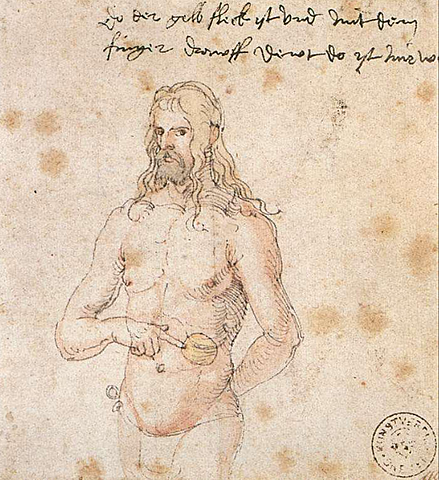 Do der gelb fleck ist vnd mit dem
finger drawff dewt do ist mir we
KUNSTVEREI